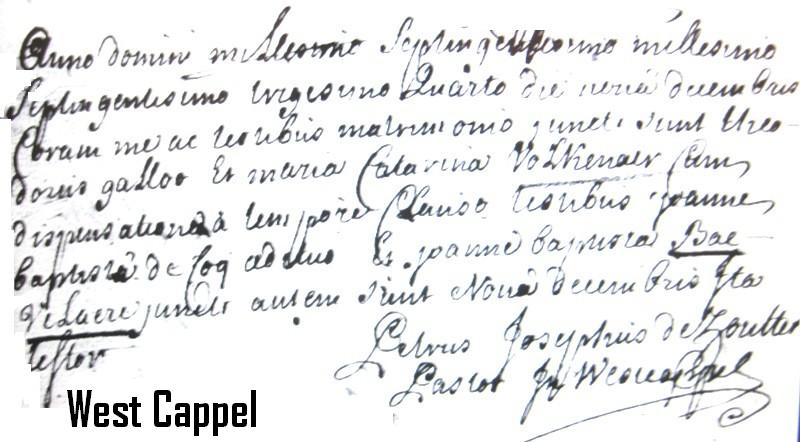 Anno domini millesimo Septingentesimo millesimo
Septingentesimo trigesimo Quarto die decembris
Coram me ac testibus matrimonio juncti sunt theo
doris galloo Et maria Catarina Volkenaer Cum
dispensatione a tempore Clauso testibus joanne
baptista de Coq Et joanne baptista Bae
Velaere juncti autem sunt Nona decembris Ita
testor
Petrus Josephus de Zoutter
Pastor In Westcappel
West Cappel